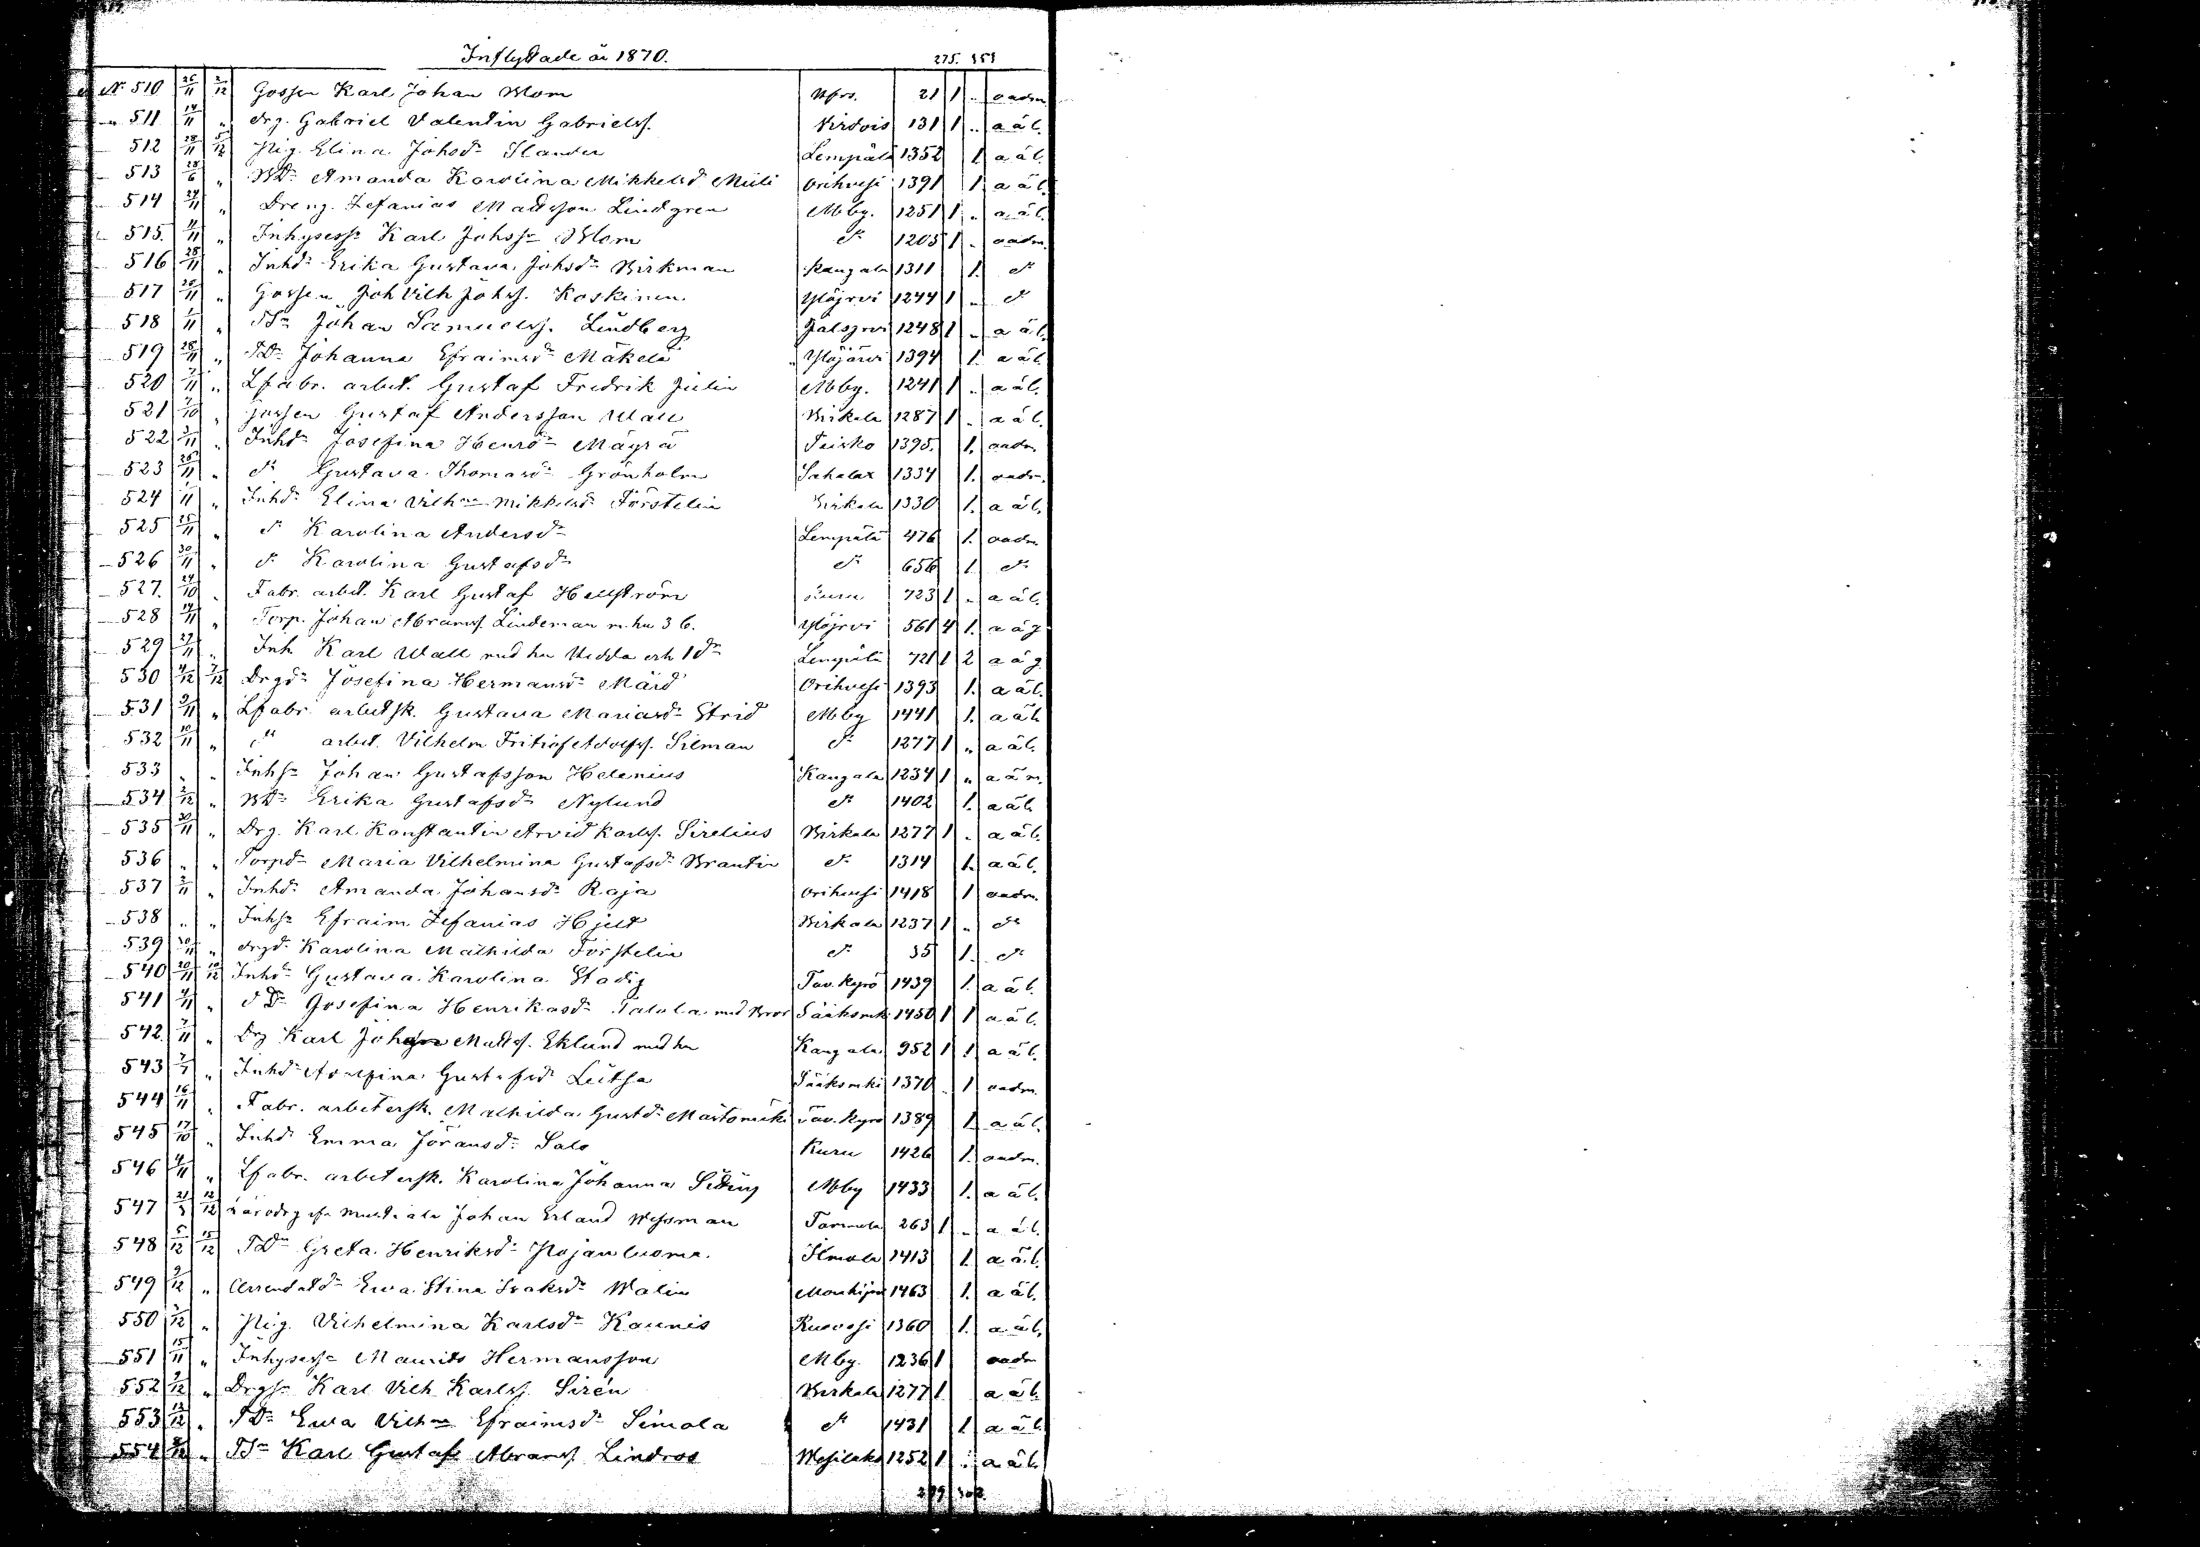 Inflyttade år 1870. 275. 353
No 510 26/11 2/12 Gossen Karl Johan Blom 21 1 " oadm.
" 511 14/11 " Drg. Gabriel Valentin Gabrielss. Virdois 131 1 " a ä l.
512 28/11 5/12 Pig. Elina Johsdr Ilander Lempälä 1352 1 a ä l.
513 28/6 " BDr Amanda Karolina Mikkelsdr Orihvesi 1391 1 a ä l.
514 24/11 " Dreng. Zefanias Matsson Lindgren Mbby. 1251 1 " a ä l.
515. " Inhysess. Karl Johss. Blom do 1205 1 " oadm.
516 28/11 " Inhdr Erika Gustava Johsdr Birkman Kangala 1311 1. do
517 26/11 " Gossen Joh Vilh Johss. Koskinen Ylöjrvi 1244 1 " do
518 1/11 " TSn Johan Samuelss. Lindberg 1248 1 " a ä l.
519 28/11 " TDr Johanna Efraimsdr Mäkelä Ylöjärvi 1394 1. a ä l.
520 7/11 " Lfabr. arbet. Gustaf Fredrik Julin Mbby. 1241 1 " a ä l.
521 7/10 " Gossen Gustaf Andersson Wall Birkala 1287 1 " a ä l.
522 3/11 " Inhdr Josefina Henrsdr Mäyrä Teisko 1395. 1. oadm.
523 26/11 " do Gustava Thomasdr Grönholm Sahalax 1334 1. oadm.
524 " Inhdr Elina Vilhna Mikkelsdr Förstelin Birkala 1330 1. a ä l.
525 25/11 " do Karolina Andersdr Lempälä 476 1. oadm.
526 30/11 " do Karolina Gustafsdr do 656 1. do
527. 24/10 " Fabr. arbet. Karl Gustaf Hellström Kuru 723 1 " a ä l.
528 14/11 " Torp. Johan Abramss. Lindeman m. hu 3 b. Ylöjrvi 561 4 1. a ä g
529 27/11 " Inh Karl Wall med hu Hedda och 1 dr Lempälä 721 1 2 a ä g.
530 4/12 7/12 Drgdr Josefina Hermansdr Mäid Orihvesi 1393 1. a ä l.
531 9/11 " Lfabr. arbetsk. Gustava Mariasdr Strid Mbby 1441 1. a ä l.
532 10/11 " do arbet. Vilhelm Fritiof Adolfss. Silman do 1277 1 " a ä l.
533 " " Inhsn Johan Gustafsson Helenius Kangala 1234 1 " a ä m.
534 2/12 " BDr Erika Gustafsdr Nylund do 1402 1. a ä l.
535 30/11 " Drg. Karl Konstantin Arvid Karlss. Sirelius Birkala 1277 1 " a ä l.
536 " " Torpdr Maria Vilhelmina Gustafsdr Brantin do 1314 1. a ä l.
537 2/11 " Inhdr Amanda Johansdr Raja Orihvesi 1418 1 oadm.
538 " " Inhsn Efraim Zefanias Hjelt Birkala 1237 1 " do
539 30/11 " Drgd. Karolina Mathilda Förstelin do 35 1. do
540 20/11 10/12 Inhdr Gustava Karolina Stadig Tav. Kyrö 1439 1. a ä l.
541 4/11 " Josefina Henriksdr Talala med Bror Sääksmki 1450 1 1 a ä l.
542. 7/11 " Drg Karl Johan Matts. Eklund med hu Kangala 952 1 1 a ä l.
543 " Inhdr Adolfina Gustafsdr Leitsa Sääksmki 1370 " 1 oadm.
544 16/11 " Fabr. arbetersk. Mathilda Gustdr Tav. Kyrö 1389 1 a ä l.
545 17/10 " Inhdr Emma Joransdr Salo Kuru 1426 1. oadm.
546 4/11 " Lfabr. arbetersk. Karolina Johanna Mbby 1433 1. a ä l.
547 12/12 Johan Erland Wessman Tammela 263 1 " a ä l.
548 5/12 15/12 TDr Greta Henriksdr Pojanluoma. Ilmola 1413 1. a ä l.
549 9/12 " Arrendatdr Eva Stina Isaksdr Walin 1463 1. a ä l.
550 " Pig. Vilhelmina Karlsdr Kaunis Ruovesi 1360 1. a ä l.
551 15/11 " Inhysessn Maurits Hermansson Mby. 1236 1 oadm
552 9/12 " Drgsn Karl Vilh Karlss. Sirén Birkala 1277 1 a ä l.
553 13/12 " TDr Eva Vilhna Efraimsdr Simola do 1431 1 a ä l.
554 " TSn Karl Gustaf Abramss. Lindros Wesilaks 1252 1 " a ä l.